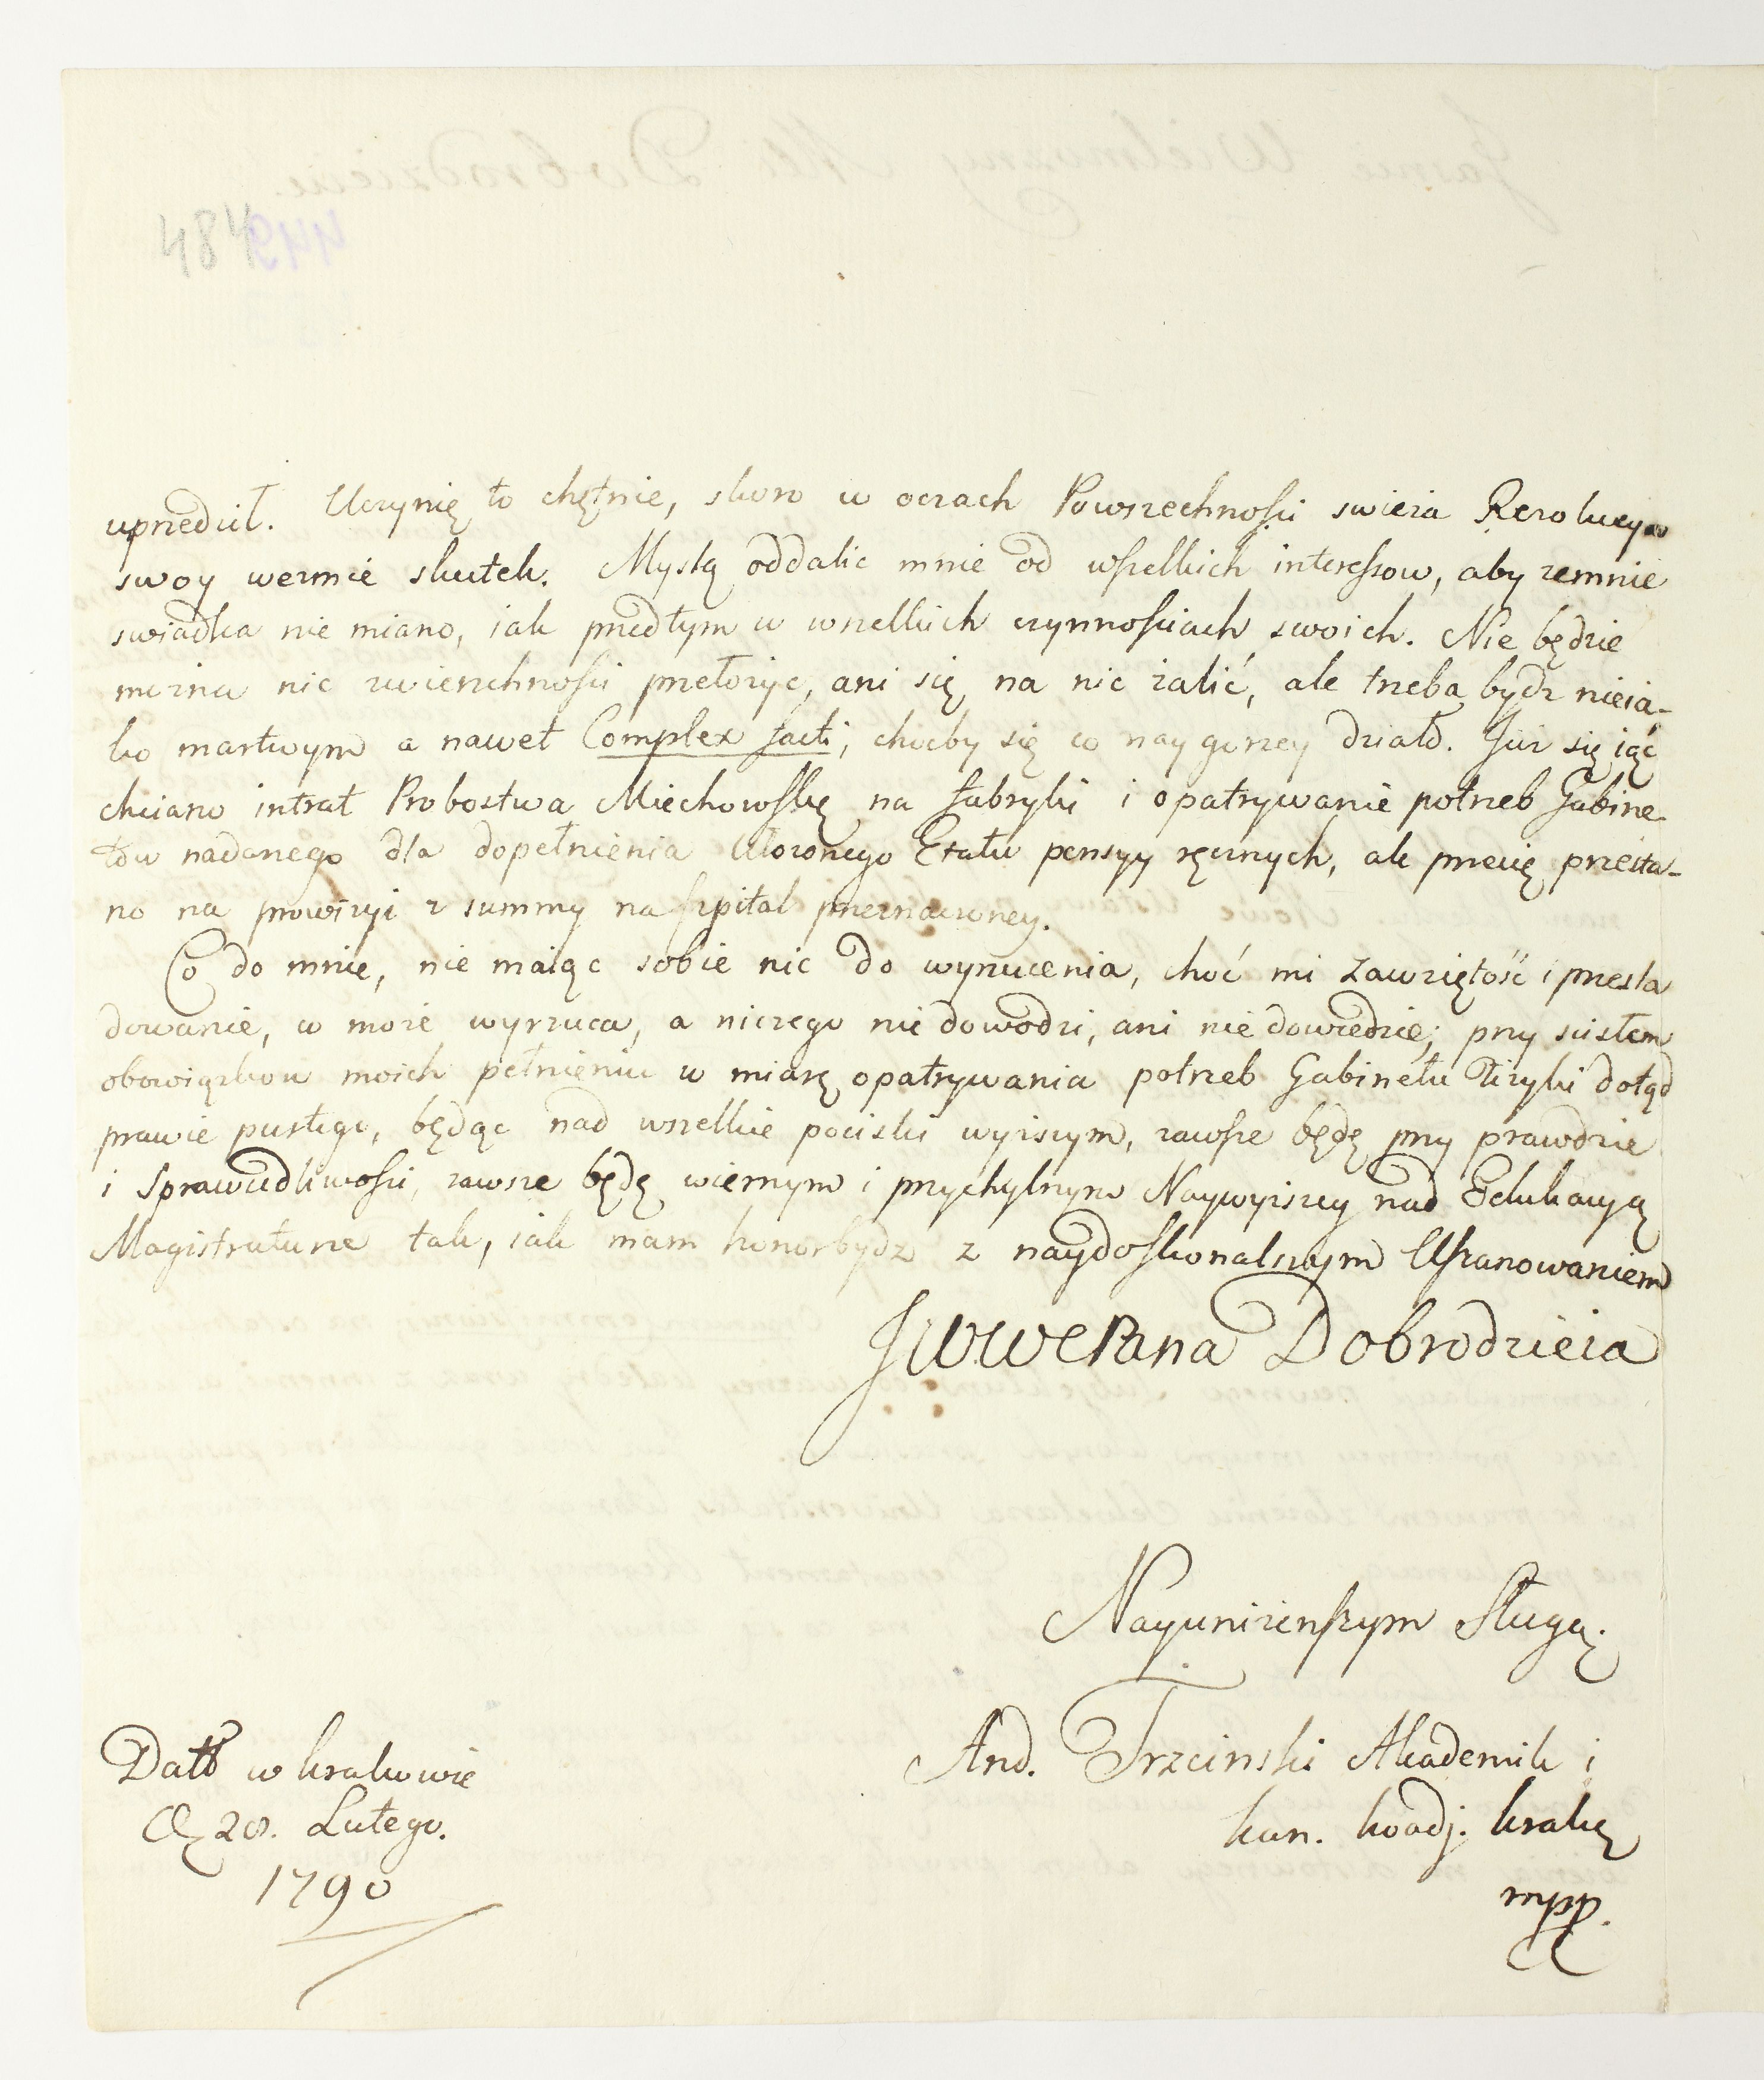 484
uprzedził. Uczynię to chętnie, skoro w oczach Powszechnosci swieża Rezolucya
swoy weżmie skutek. Myslą oddalic mnie od wszelkich interessow, aby zemnie
swiadka nie miano, iak przedtym w wszelkich czynnosciach swoich. Nie będzie
można nic zwierzchnosci przełożyc, ani się na nic żalić, ale trzeba bydz nieia-
ko martwym a nawet Complex facti, choćby się co naygorzey działo. Już się iąć
chciano intrat Probostwa Miechowskę na fabryki i opatrywanie potrzeb Gabine-
tow nadanego dla dopełnienia ułożonego Etatu pensyy ręcznych, ale przecię przesta-
no na prowizyi z summy na szpital przeznaczoney.
Co do mnie, nie maiąc sobie nic do wyrzucenia, choć mi zawziętość i przesla
dowanie, co może wyrzuca, a niczego nie dowodzi, ani nie dowiedzie; przy scisłem
obowiązkow moich pełnieniu w miarę opatrywania potrzeb Gabinetu Fizyki dotąd
prawie pustego, będąc nad wszelkie pociski wyższym, zawsze będę przy prawdzie
i sprawiedliwosci, zawsze będę wiernym i przychylnym Naywyższey nad Edukacyą
Magistraturze tak, iak mam honor bydz z naydoskonalszym Uszanowaniem
JWWePana Dobrodzieia
Nayunizenszym Sługą.
And. Trzcinski Akademik i
kan. koadj. krakę
mpp.
Datt w krakowie
D. 28. Lutego.
1790